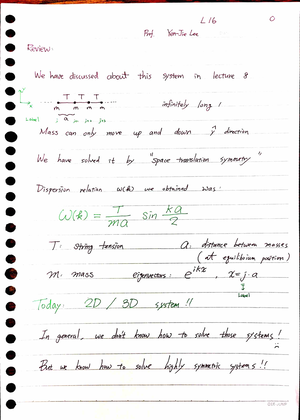 L16
0
Prof. Yen-Jie Lee
Review:
We have discussed about this system in lecture 8
T T T
m m m m
infinitely long !
Label j j+1 j+2
a
Mass can only move up and down ŷ direction
We have solved it by "space translation symmetry"
Dispersion relation ω(k) we obtained was:
ω(k) = T/ma sin ka/2
T: string tension a: distance between masses
(at equilibrium position)
m: mass eigenvectors: e^{ikx} , x=j·a
Label
Today: 2D / 3D system !!
In general, we don't know how to solve those systems !
But we know how to solve highly symmetric systems !!